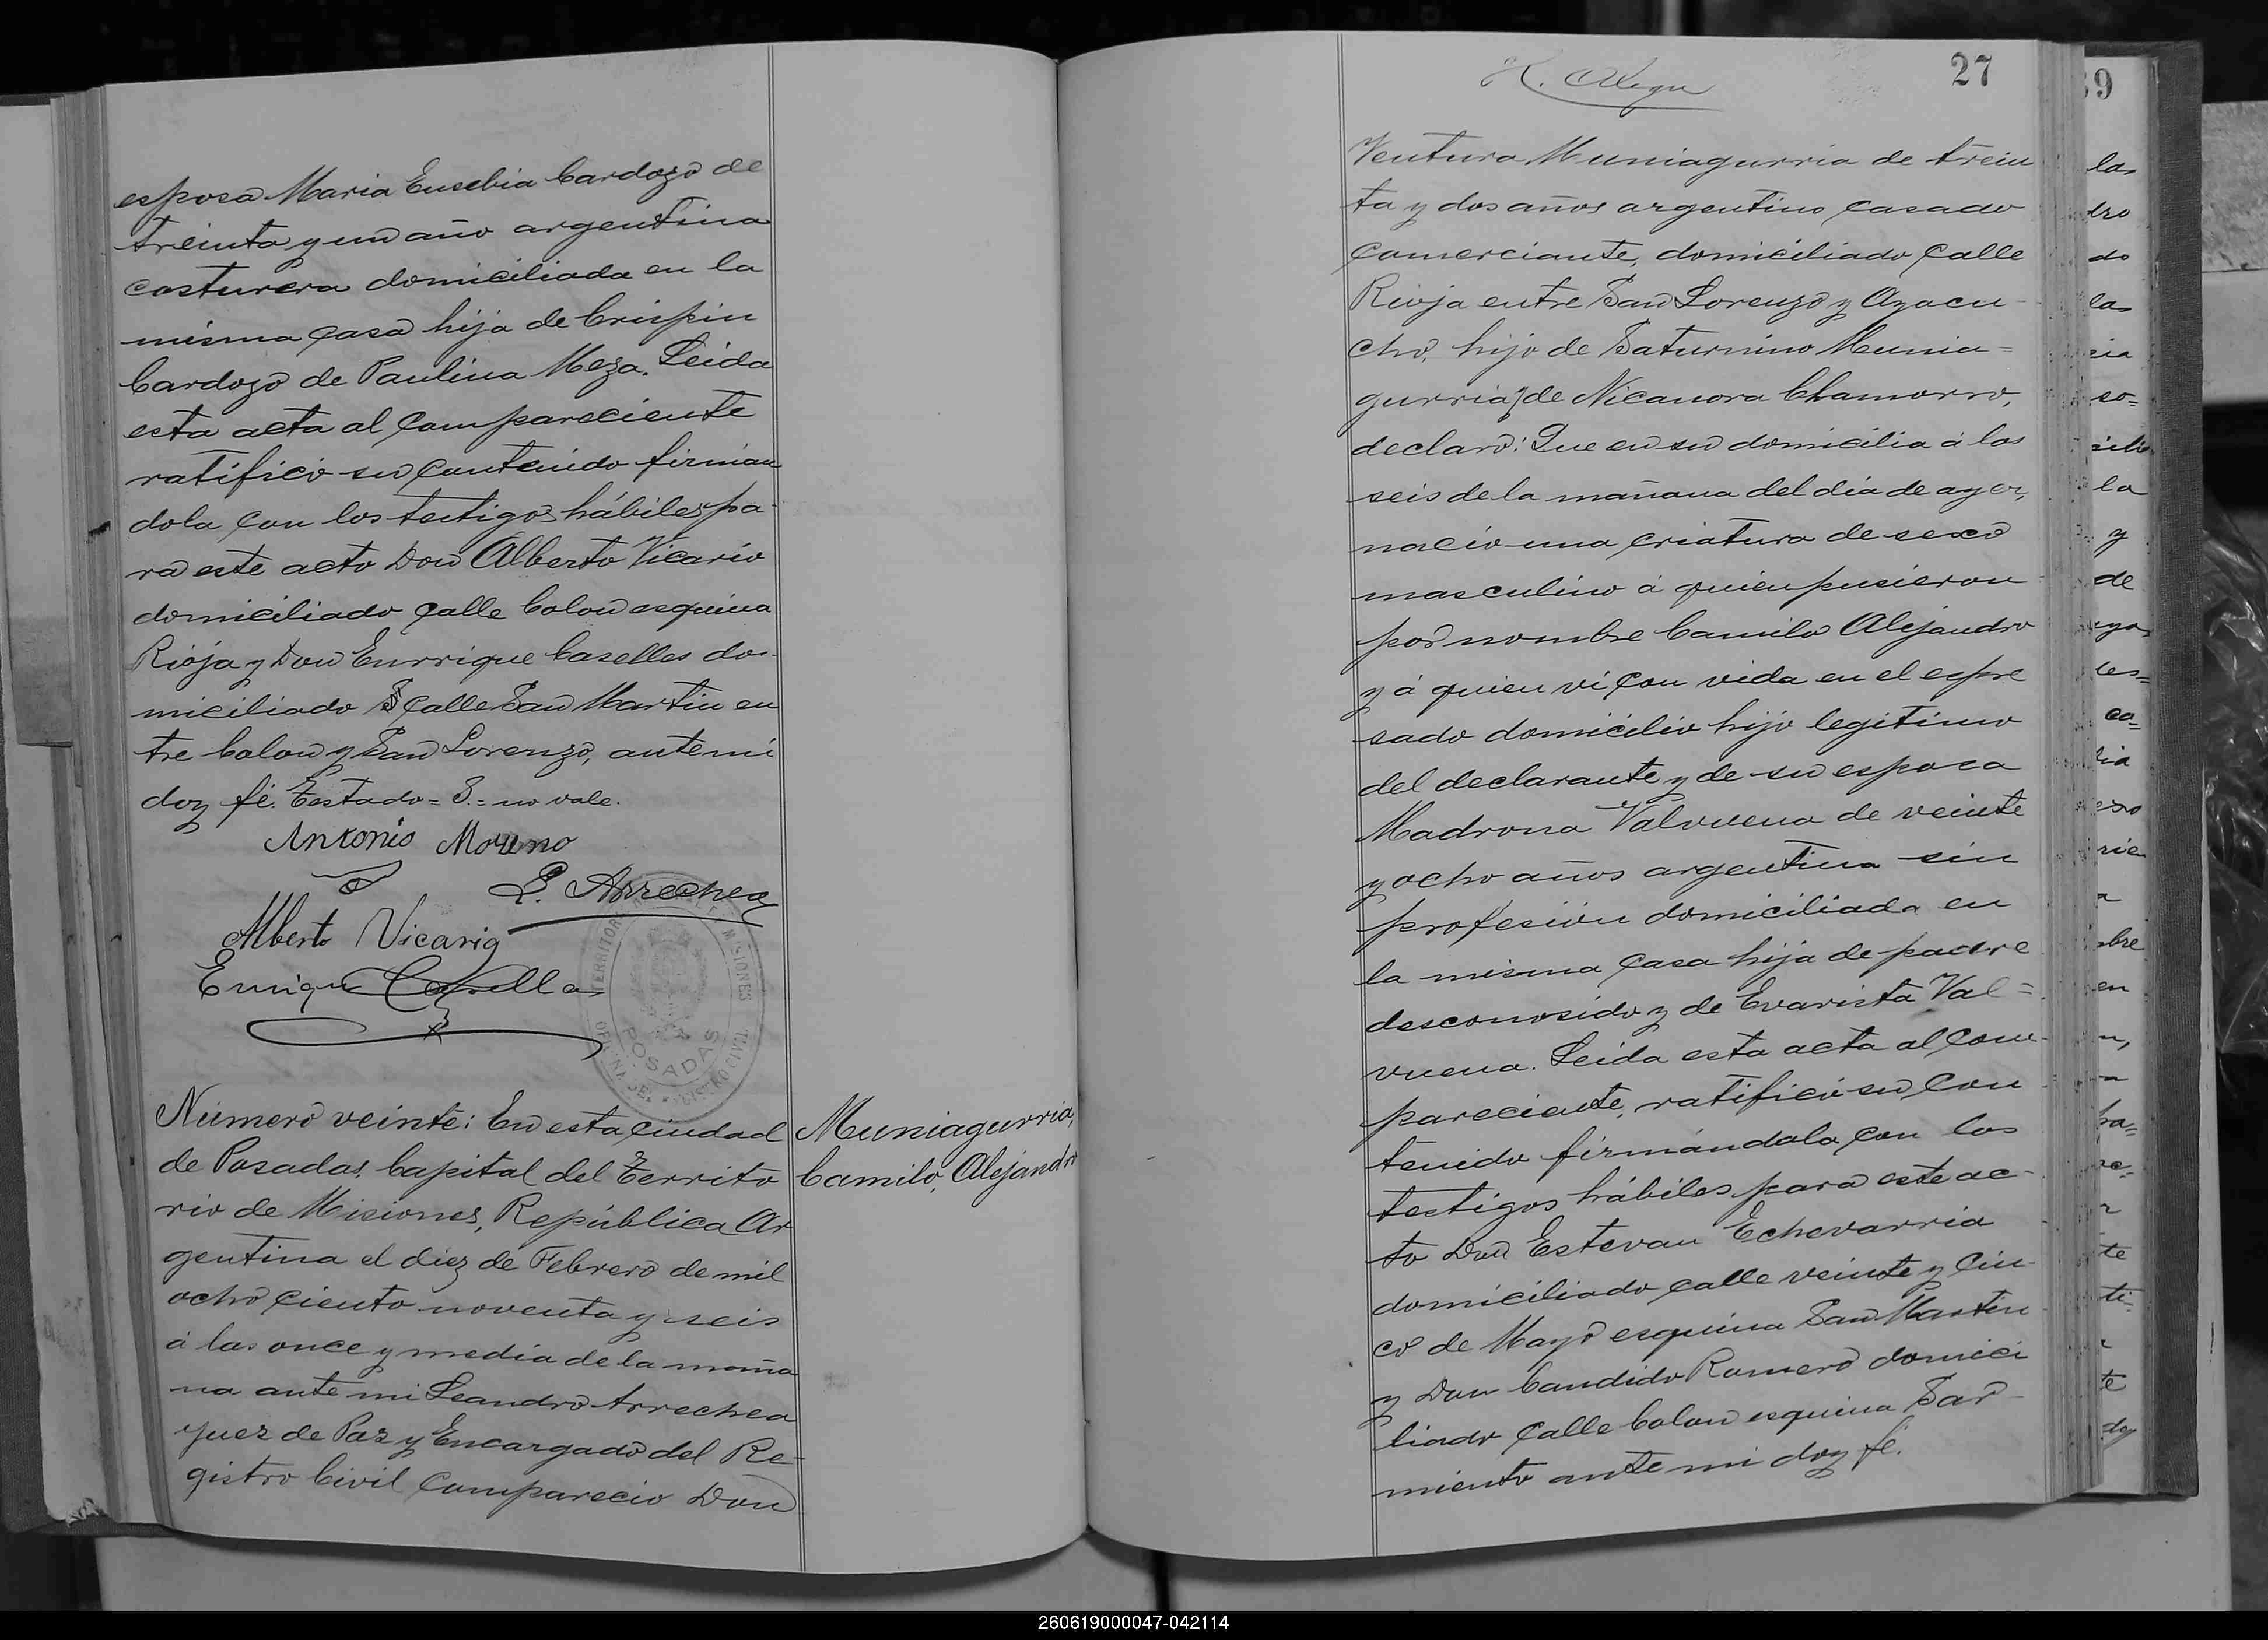 esposa Maria Eusebia Cardozo de
treinta y un año argentina
costurera domiciliada en la
misma casa hija de Crispin
Cardozo de Paulina Meza. Leida
esta acta al compareciente
ratificó su contenido firmán
dola con los testigos hábiles pa-
ra este acto Don Alberto Vicario
domiciliado calle Colon esquina
Rioja y Don Enrrique Caselles do-
miciliado S calle San Martin en
tre Colon y San Lorenzo, ante mi
doy fé. Testado = S. = no vale.
Antonio Moreno
L. Arrechea
Alberto Vicario
Enrique Casella
TERRITORIO MISIONES
POSADAS
REGISTRO CIVIL
Número veinte: En esta ciudad
de Posadas, Capital del Territo
rio de Misiones, República Ar
gentina el diez de Febrero de mil
ocho ciento noventa y seis
á las once y media de la maña
na ante mi Leandro Arrechea
Juez de Paz y Encargado del Re-
gistro Civil compareció Don
Muniagurria,
Camilo, Alejandro
27
Ventura Muniagurria de trein
ta y dos años argentino casado
comerciante, domiciliado calle
Rioja entre San Lorenzo y Ayacu-
cho, hijo de Saturnino Munia=
gurria y de Nicanora Chamorro,
declaró: Que en su domicilia á las
seis de la mañana del dia de ayer,
nació una criatura de sexo
masculino á quien pusieron
por nombre Camilo Alejandro
y á quien vi con vida en el espre
sado domicilio hijo legitimo
del declarante y de su esposa
Madrona Valvuena de veinte
y ocho años argentina sin
profesión domiciliada en
la misma casa hija de padre
desconosido y de Evarista Val=
vuena. Leida esta acta al com-
pareciente, ratificó su con
tenido firmándola con los
testigos hábiles para este ac-
to Don Estevan Echevarria
domiciliado calle veinte y cin-
co de Mayo esquina San Martin
y Don Candido Romero domici
liado calle Colon esquina Sar-
miento ante mi doy fé.
39
las
dro
do
las
so=
la
y
de
les=
ca=
bre
en
te
ti=
te
doy
260619000047-042114